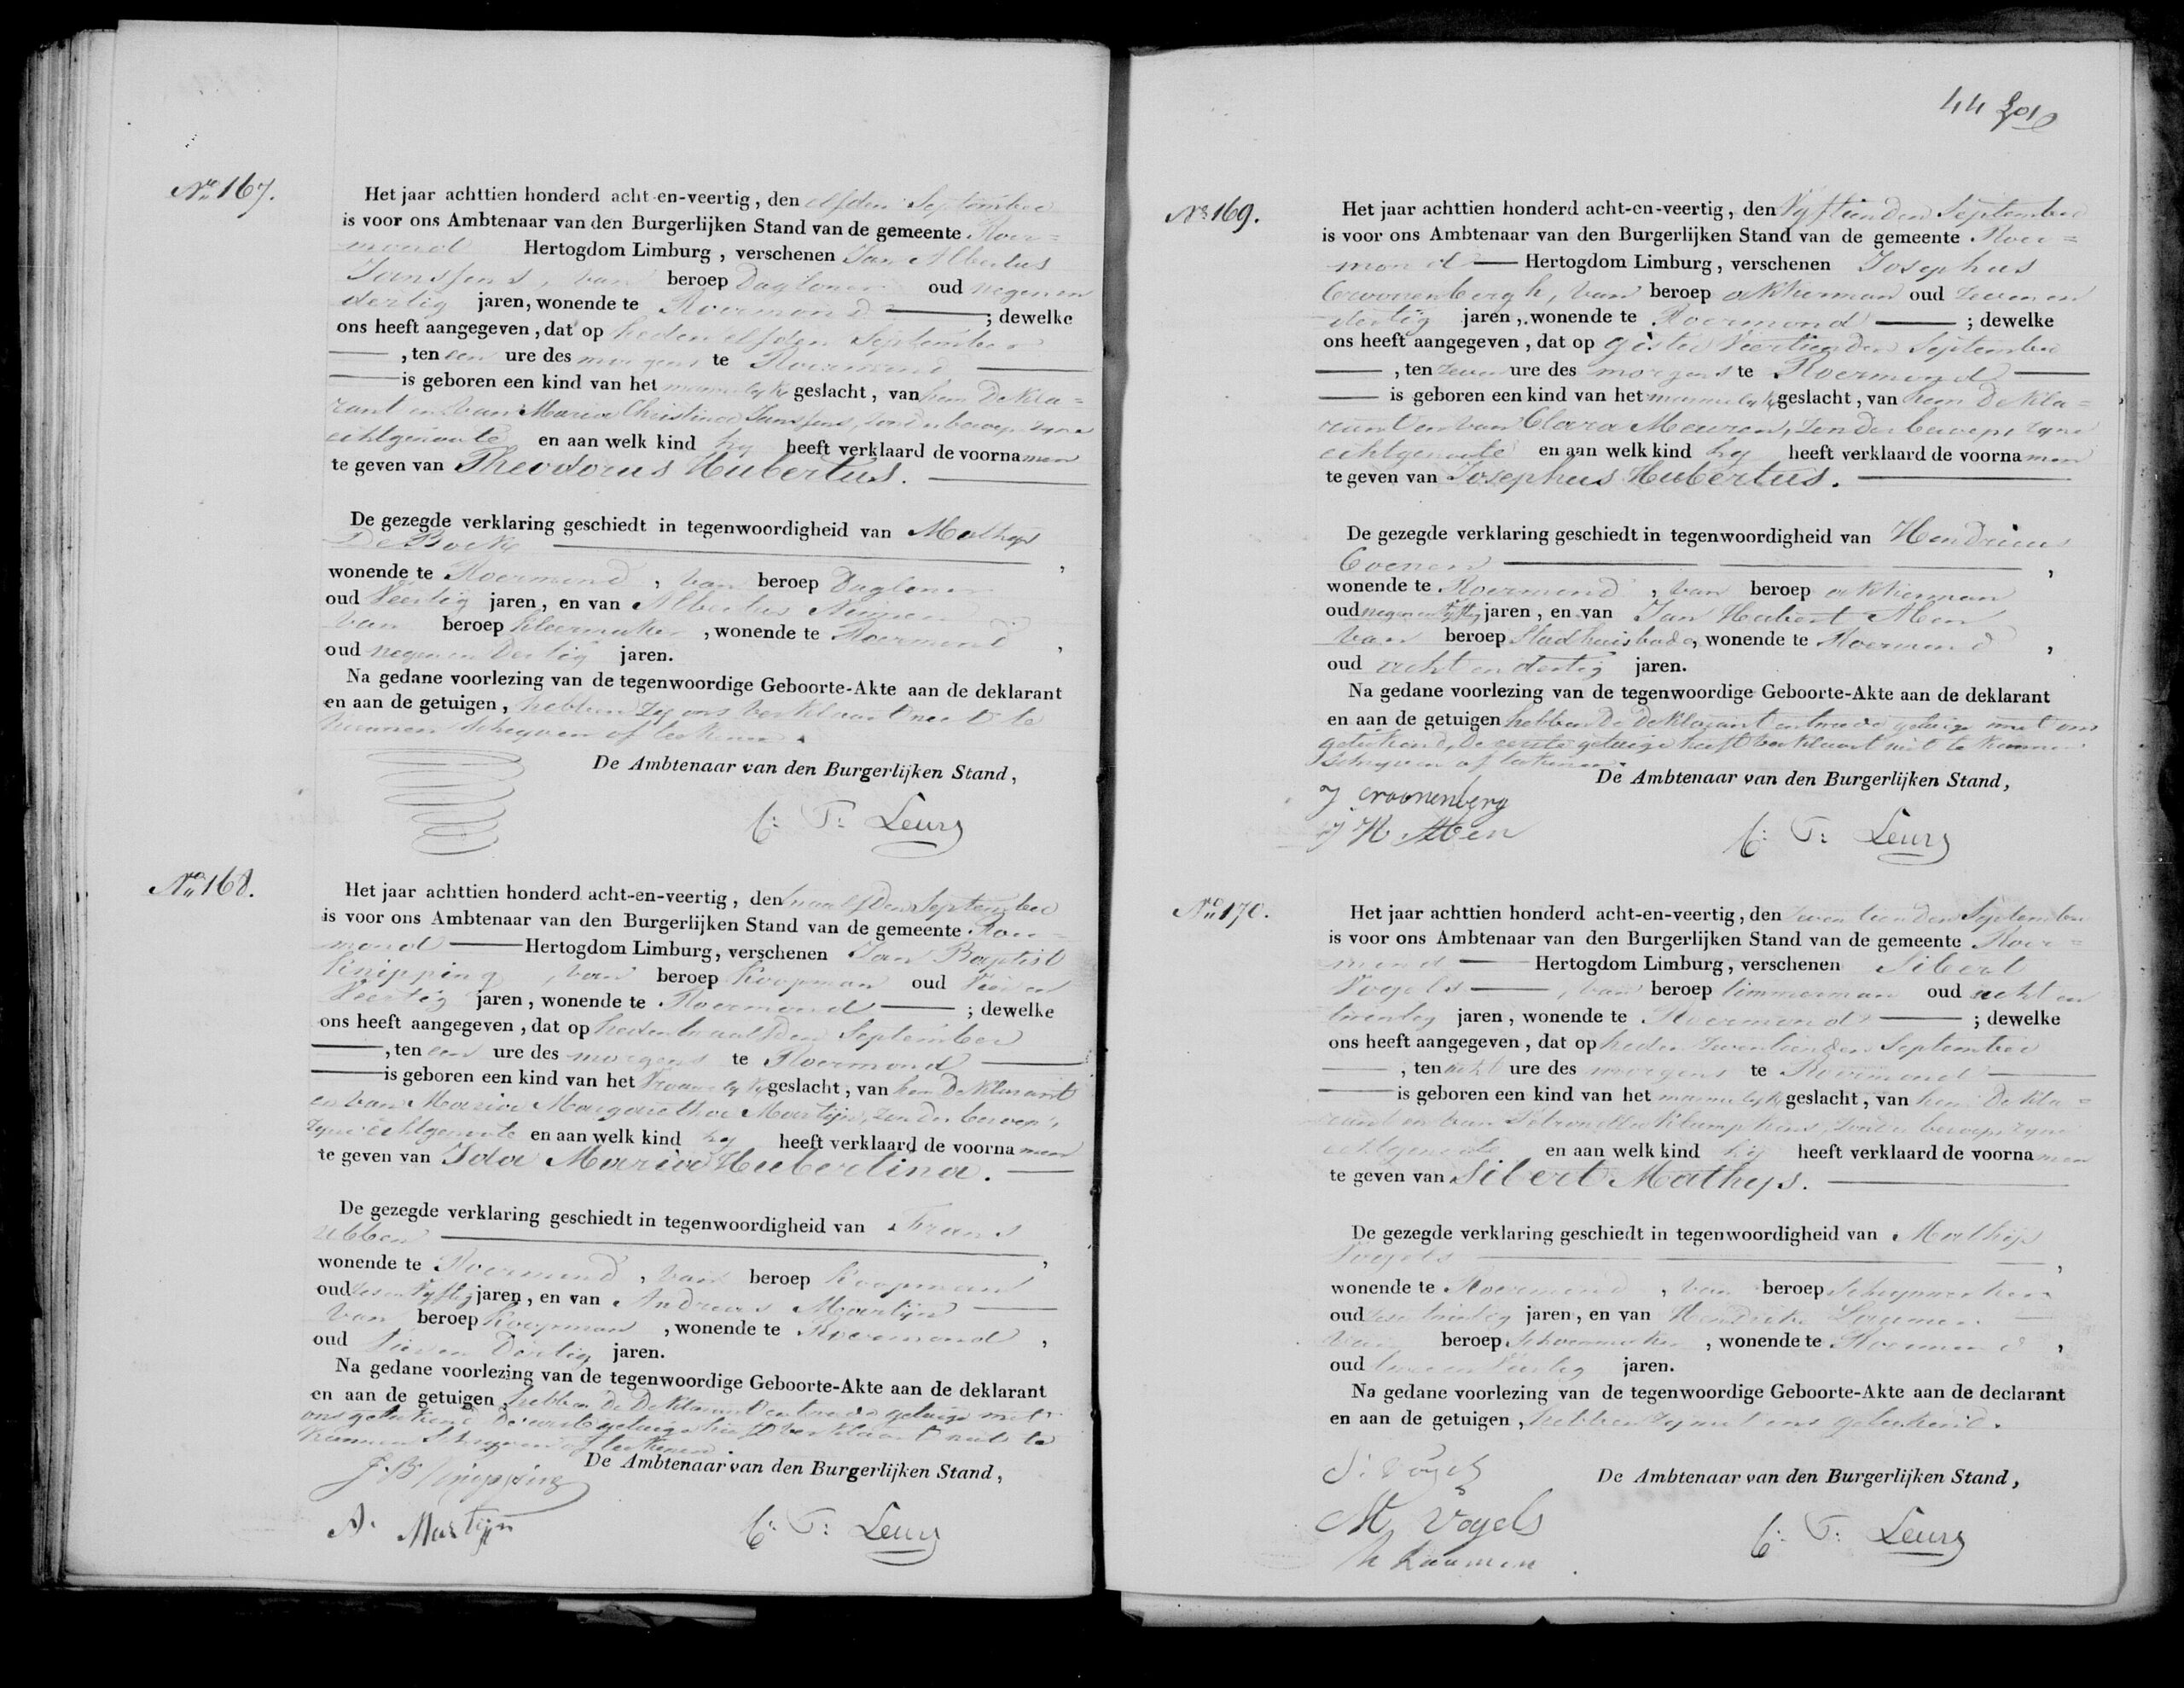 No 167.
Het jaar achttien honderd acht-en-veertig, den elfden September
is voor ons Ambtenaar van den Burgerlijken Stand van de gemeente Roer=
mond Hertogdom Limburg, verschenen Jan Albertus
Janssens, van beroep Daglooner oud negen en
dertig jaren, wonende te Roermond ; dewelke
ons heeft aangegeven, dat op heden elfden September
, ten een ure des morgens te Roermond
is geboren een kind van het mannelyk geslacht, van hem Dekla=
rant en van Maria Christina Janssens, zonder beroep zyne
echtgenoote en aan welk kind hy heeft verklaard de voornamen
te geven van Theodorus Hubertus.
De gezegde verklaring geschiedt in tegenwoordigheid van Mathys
De Bock
wonende te Roermond, van beroep Daglooner
oud Veertig jaren, en van Albertus
van beroep kleermaker, wonende te Roermond,
oud negen en Dertig jaren.
Na gedane voorlezing van de tegenwoordige Geboorte-Akte aan de deklarant
en aan de getuigen, hebben zy ons verklaard niet te
kunnen schryven of teekenen.
De Ambtenaar van den Burgerlijken Stand,
C: T: Leurs
No 168.
Het jaar achttien honderd acht-en-veertig, den twaalfden September
is voor ons Ambtenaar van den Burgerlijken Stand van de gemeente Roer=
mond Hertogdom Limburg, verschenen Jan Baptist
Knipping, van beroep Koopman oud Vier en
Veertig jaren, wonende te Roermond ; dewelke
ons heeft aangegeven, dat op heden twaalfden September
, ten een ure des morgens te Roermond
is geboren een kind van het Vrouwelyk geslacht, van hem Deklarant
en van Maria Margaretha Martijn, zonder beroep,
zyne echtgenoote en aan welk kind hy heeft verklaard de voornamen
te geven van Ida Maria Hubertina.
De gezegde verklaring geschiedt in tegenwoordigheid van Frans
Ubben
wonende te Roermond, van beroep Koopman
oud zes en Vyftig jaren, en van Andreas Martijn
van beroep Koopman, wonende te Roermond,
oud Vier en Dertig jaren.
Na gedane voorlezing van de tegenwoordige Geboorte-Akte aan de deklarant
en aan de getuigen hebben de Deklarant en tweede getuige met
ons geteekend De eerste getuige heeft verklaard niet te
kunnen schryven of teekenen.
De Ambtenaar van den Burgerlijken Stand,
J. B. Knipping
A. Martijn
C: T: Leurs
44
No 169.
Het jaar achttien honderd acht-en-veertig, den Vyftienden September
is voor ons Ambtenaar van den Burgerlijken Stand van de gemeente Roer=
mond Hertogdom Limburg, verschenen Josephus
Croonenbergh, van beroep akkerman oud zeven en
dertig jaren, wonende te Roermond ; dewelke
ons heeft aangegeven, dat op gister Veertienden September
, ten zeven ure des morgens te Roermond
is geboren een kind van het mannelyk geslacht, van hem Dekla=
rant en van Clara Meuren, zonder beroep, zyne
echtgenoote en aan welk kind hy heeft verklaard de voornamen
te geven van Josephus Hubertus.
De gezegde verklaring geschiedt in tegenwoordigheid van Hendricus
Coenen
wonende te Roermond, van beroep akkerman
oud negen en Vyftig jaren, en van Jan Hubert Aben
van beroep Stadhuisbode, wonende te Roermond,
oud acht en dertig jaren.
Na gedane voorlezing van de tegenwoordige Geboorte-Akte aan de deklarant
en aan de getuigen hebben De Deklarant en tweede getuige met ons
geteekend, De eerste getuige heeft verklaard niet te kunnen
Schryven of teekenen.
De Ambtenaar van den Burgerlijken Stand,
J croonenberg
J H Aben
C: T: Leurs
No 170.
Het jaar achttien honderd acht-en-veertig, den zeventienden September
is voor ons Ambtenaar van den Burgerlijken Stand van de gemeente Roer=
mond Hertogdom Limburg, verschenen Sibert
Vogels, van beroep timmerman oud acht en
twintig jaren, wonende te Roermond ; dewelke
ons heeft aangegeven, dat op heden zeventienden September
, ten acht ure des morgens te Roermond
is geboren een kind van het mannelyk geslacht, van hem Dekla=
rant en van Petronella Klumpkens, zonder beroep zyne
echtgenoote en aan welk kind hij heeft verklaard de voornamen
te geven van Sibert Mathys.
De gezegde verklaring geschiedt in tegenwoordigheid van Mathijs
Vogels
wonende te Roermond, van beroep
oud jaren, en van Hendrik Laumen
van beroep schoenmaker, wonende te Roermond,
oud twee en Veertig jaren.
Na gedane voorlezing van de tegenwoordige Geboorte-Akte aan de declarant
en aan de getuigen, hebben zy met ons geteekend.
De Ambtenaar van den Burgerlijken Stand,
S: Vogels
M Vogels
h Laumen
C: T: Leurs